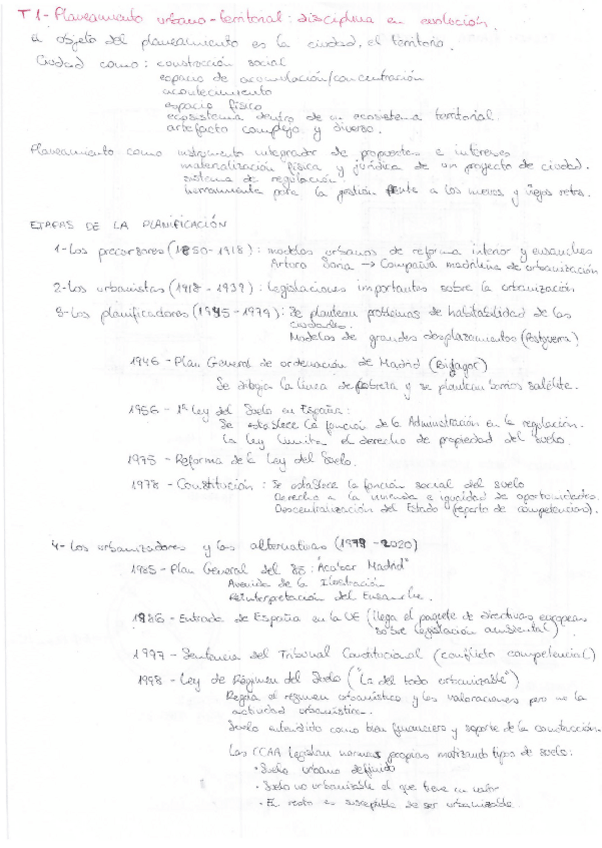 T1- Planeamiento urbano-territorial: disciplina en evolución.
El objeto del planeamiento es la ciudad, el territorio.
Ciudad como: construcción social
espacio de acumulación/concentración
acontecimiento
espacio físico
ecosistema dentro de un ecosistema territorial.
artefacto complejo y diverso.
Planeamiento como instrumento integrador de propuestas e intereses
materialización física y jurídica de un proyecto de ciudad.
sistema de regulación.
herramienta para la gestión frente a los nuevos y viejos retos.
ETAPAS DE LA PLANIFICACIÓN
1-Los precursores (1850-1918): modelos urbanos de reforma interior y ensanches
Arturo Soria → Compañía madrileña de urbanización
2-Los urbanistas (1918-1939): legislaciones importantes sobre la urbanización
3-Los planificadores (1945-1979): Se plantean problemas de habitabilidad de las
ciudades.
Modelos de grandes desplazamientos (Postguerra)
1946 - Plan General de ordenación de Madrid (Bidagor)
Se dibuja la línea de pobreza y se plantean barrios satélite.
1956 - 1ª Ley del Suelo en España:
Se establece la función de la Administración en la regulación.
La Ley limita el derecho de propiedad del suelo.
1975 - Reforma de la Ley del Suelo.
1978 - Constitución: Se establece la función social del suelo
Derecho a la vivienda e igualdad de oportunidades.
Descentralización del Estado (reparto de competencias).
4-Los urbanizadores y las alternativas (1979-2020)
1985-Plan General del 85: "Acabar Madrid"
Avenida de la Ilustración
Reinterpretación del Ensanche.
1986 - Entrada de España en la UE (llega el paquete de directivas europeas
sobre legislación ambiental)
1997 - Sentencia del Tribunal Constitucional (conflicto competencial)
1998 - Ley de Régimen del Suelo ("La del todo urbanizable")
Regula el régimen urbanístico y las valoraciones pero no la
actividad urbanística.
Suelo entendido como bien financiero y soporte de la construcción.
Las CCAA legislan normas propias matizando tipos de suelo:
· Suelo urbano definido
· Suelo no urbanizable el que tiene un valor
· El resto es susceptible de ser urbanizable.